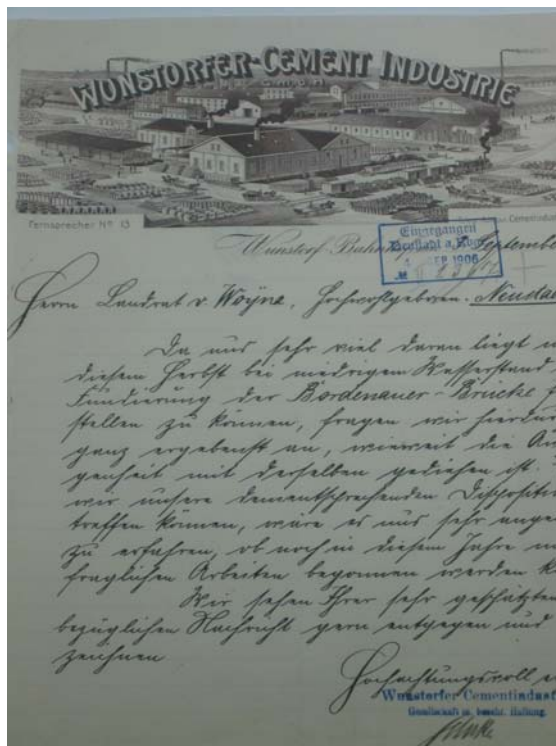 WUNSTORFER-CEMENT INDUSTRIE
G.M.B.H.
Fernsprecher No 13
Cementindu
Wunstorf-Bahnh September
Eingegangen
Neustadt a. Rbge
4 SEP 1906
Herrn Landrat v. Woÿna, Hochwohlgeboren. Neusta
Da uns sehr viel daran liegt n
diesem Herbst bei niedrigem Wasserstand
Fundierung der Bordenauer-Brücke
stellen zu können, fragen wir hierdur
ganz ergebenst an, wieweit die An
genheit mit derselben gediehen ist.
wir unsere dementsprechenden Dispositi
treffen können, wäre es uns sehr ange
zu erfahren, ob noch in diesem Jahre m
fraglichen Arbeiten begonnen werden k
Wir sehen Ihrer sehr geschätzten
bezüglichen Nachricht gern entgegen und
zeichnen
Hochachtungsvoll e
Wunstorfer Cementindust
Gesellschaft m. beschr. Haftung.